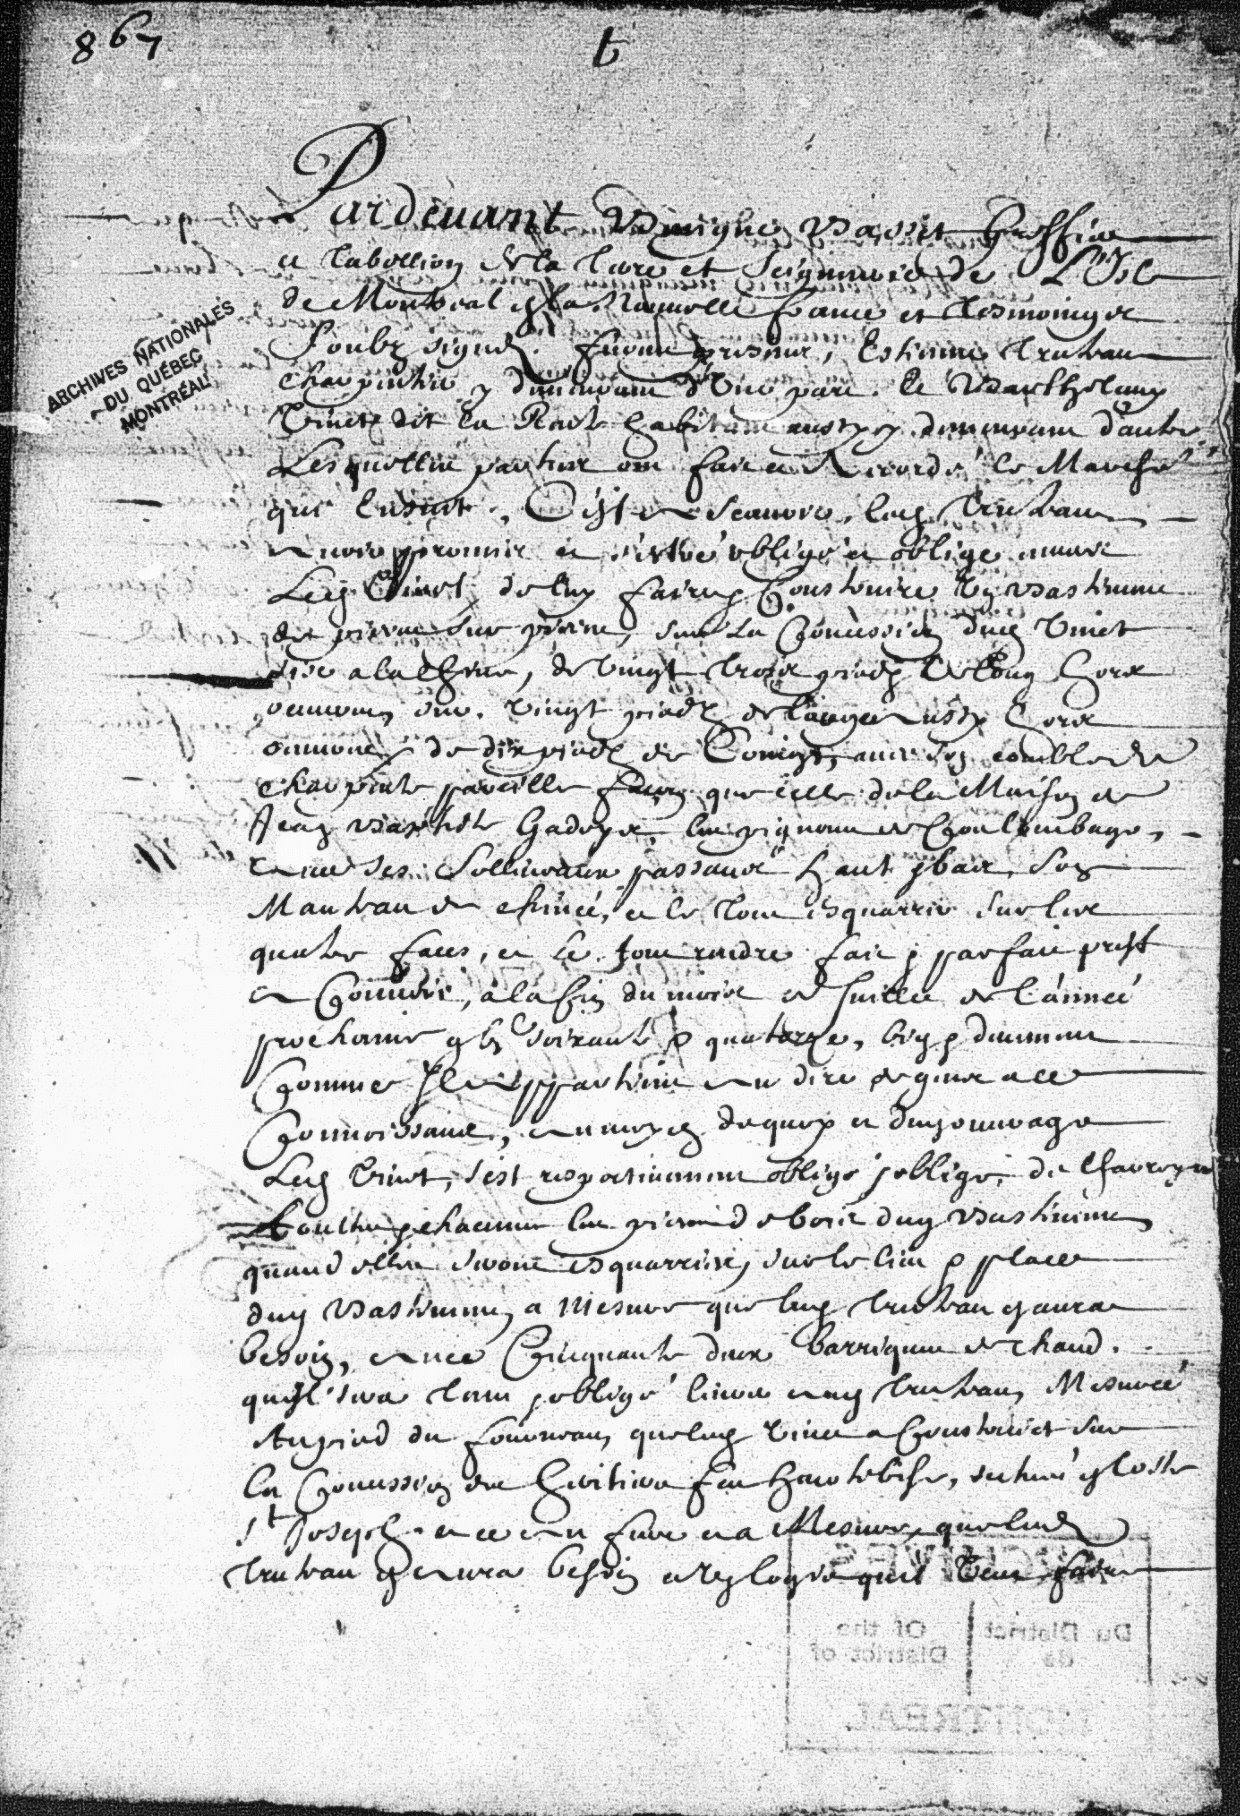 867
t
Pardevant Benigne Basset Greffier
et Tabellion de la Terre et Seigneurie de L'Isle
de Montreal en la Nouvelle france et tesmoings
Soubz signez. furent presens, Estienne Truteau
charpentier y demeurant d'Une part. et Barthelemy
Vinet dit La Rente habitant aussy y demeurant d'autre
Lesquelles parties ont fait et accordé le Marché
qui Ensuit, C'est a Scauoir, led Truteau
auoir promis et s'estre obligé et oblige enuers
Led Vinet de luy faire Construire Un Bastiment
de piece sur piece, sur La Concession dud Vinet
size a la chine, de Vingt trois piedz de long hors
oeuure, sur Vingt piedz de large aussy hors
oeuure de dix piedz de auec son comble de
charpente pareille facon que celle de la Maison de
Jean Baptiste Gadoys, les pignons de Coulombage,
auec ses Solliueaux passans haut & bas, Son
Manteau de chiminée, et le tout esquarrie sur les
quatre faces, et Le tout rendre fait & parfait prest
a Couurir, a la fin du mois de Juillet de l'année
prochaine gbj soixante & quatorze, bien & deument
Comme Il appartient au dire de gens a ce
Connoissans, au moyen de quoy et dud ouurage
Led Vinet, s'est respectiuement obligé & oblige, de Charroyer
touttes & chacunes les pieces de bois dud Bastiment,
quand elles seront esquarries, sur le lieu & place
dud Bastiment, a Mesure que led Truteau en aura
besoin, auec Cinquante deux barriques de chaud.
qu'il sera tenu & obligé liurer aud Truteau, Mesurée
Au pied du fourneau, que led Vinet a Construict sur
La Concession des heritiers feu hautebise, au coste
St Joseph. et ce au fur et a Mesure, que led
Truteau en aura besoin qu'il Veut faire
ARCHIVES NATIONALES
DU QUÉBEC
MONTRÉAL
ARCHIVES
Du District
de
Of the
District of
MONTREAL